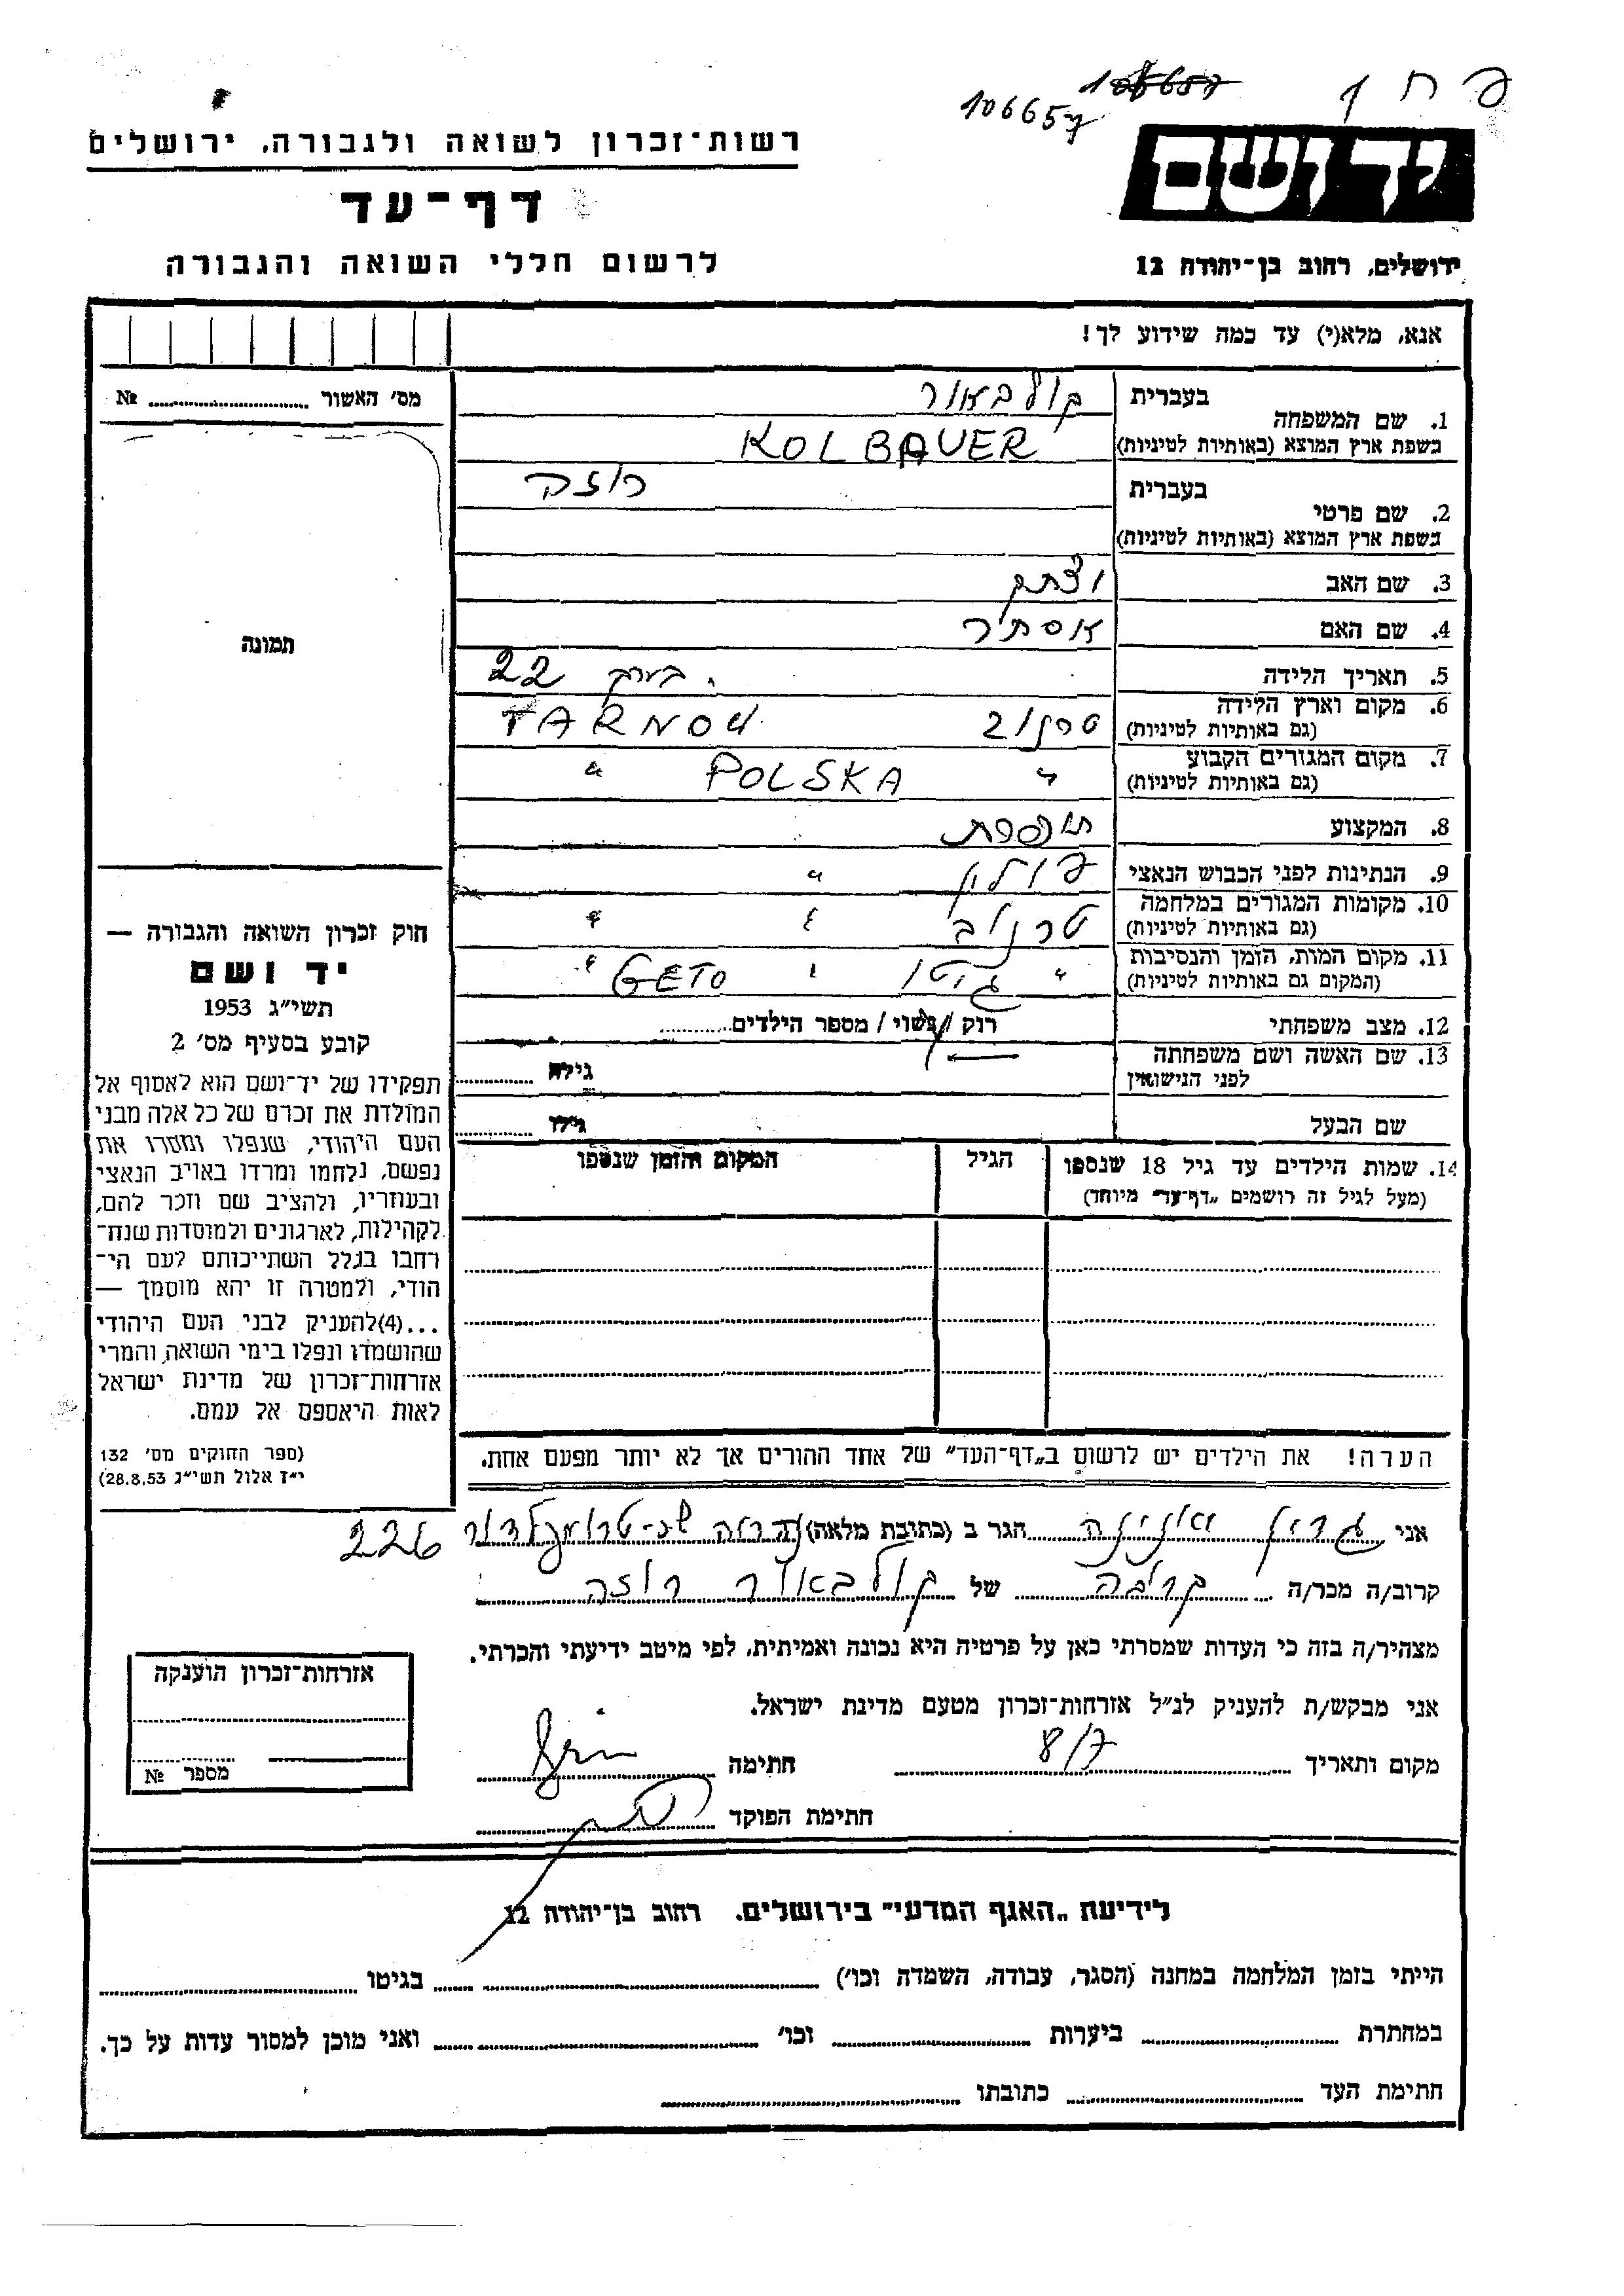 פ ח ו
106657
106657
רשות-זכרון לשואה ולגבורה, ירושלים
יד ושם
דף-עד
לרשום חללי השואה והגבורה
ירושלים, רחוב בן-יהודה 12
אנא, מלא(י) עד כמה שידוע לך!
מס׳ האשור ........ №
תמונה
1. שם המשפחה בעברית קולבאור
בשפת ארץ המוצא (באותיות לטיניות) KOLBAUER
2. שם פרטי בעברית רוזה
בשפת ארץ המוצא (באותיות לטיניות)
3. שם האב
4. שם האם אסתר
5. תאריך הלידה בערך 22
6. מקום וארץ הלידה (גם באותיות לטיניות) טרנוב TARNOW
7. מקום המגורים הקבוע (גם באותיות לטיניות) " POLSKA "
8. המקצוע תופרת
9. הנתינות לפני הכבוש הנאצי פולין "
10. מקומות המגורים במלחמה (גם באותיות לטיניות) טרנוב " "
11. מקום המות, הזמן והנסיבות (המקום גם באותיות לטיניות) " גיטו " GETO "
12. מצב משפחתי רוק / נשוי / מספר הילדים........
13. שם האשה ושם משפחתה לפני הנישואין — גילה ........
שם הבעל גילו ........
14. שמות הילדים עד גיל 18 שנספו (מעל לגיל זה רושמים „דף-עד״ מיוחד) הגיל המקום והזמן שנספו
חוק זכרון השואה והגבורה —
יד ושם
תשי״ג 1953
קובע בסעיף מס׳ 2
תפקידו של יד-ושם הוא לאסוף אל
המולדת את זכרם של כל אלה מבני
העם היהודי, שנפלו ומסרו את
נפשם, נלחמו ומרדו באויב הנאצי
ובעוזריו, ולהציב שם וזכר להם,
לקהילות, לארגונים ולמוסדות שנח-
רחבו בגלל השתייכותם לעם הי-
הודי, ולמטרה זו יהא מוסמך —
...(4) להעניק לבני העם היהודי
שהושמדו ונפלו בימי השואה והמרי
אזרחות-זכרון של מדינת ישראל
לאות היאספם אל עמם.
(ספר החוקים מס׳ 132
י״ז אלול תשי״ג 28.8.53)
הערה! את הילדים יש לרשום ב„דף-העד״ של אחד ההורים אך לא יותר מפעם אחת.
אני גרין הגר ב (כתובת מלאה) 226
קרוב/ה מכר/ה קרובה של קולבאור רוזה
מצהיר/ה בזה כי העדות שמסרתי כאן על פרטיה היא נכונה ואמיתית, לפי מיטב ידיעתי והכרתי.
אני מבקש/ת להעניק לנ״ל אזרחות-זכרון מטעם מדינת ישראל.
מקום ותאריך 8/7 חתימה
חתימת הפוקד
אזרחות-זכרון הוענקה
מספר №
לידיעת „האגף המדעי״ בירושלים, רחוב בן-יהודה 12
הייתי בזמן המלחמה במחנה (הסגר, עבודה, השמדה וכו׳) ........ בגיטו ........
במחתרת ........ ביערות ........ וכו׳ ........ ואני מוכן למסור עדות על כך.
חתימת העד ........ כתובתו ........